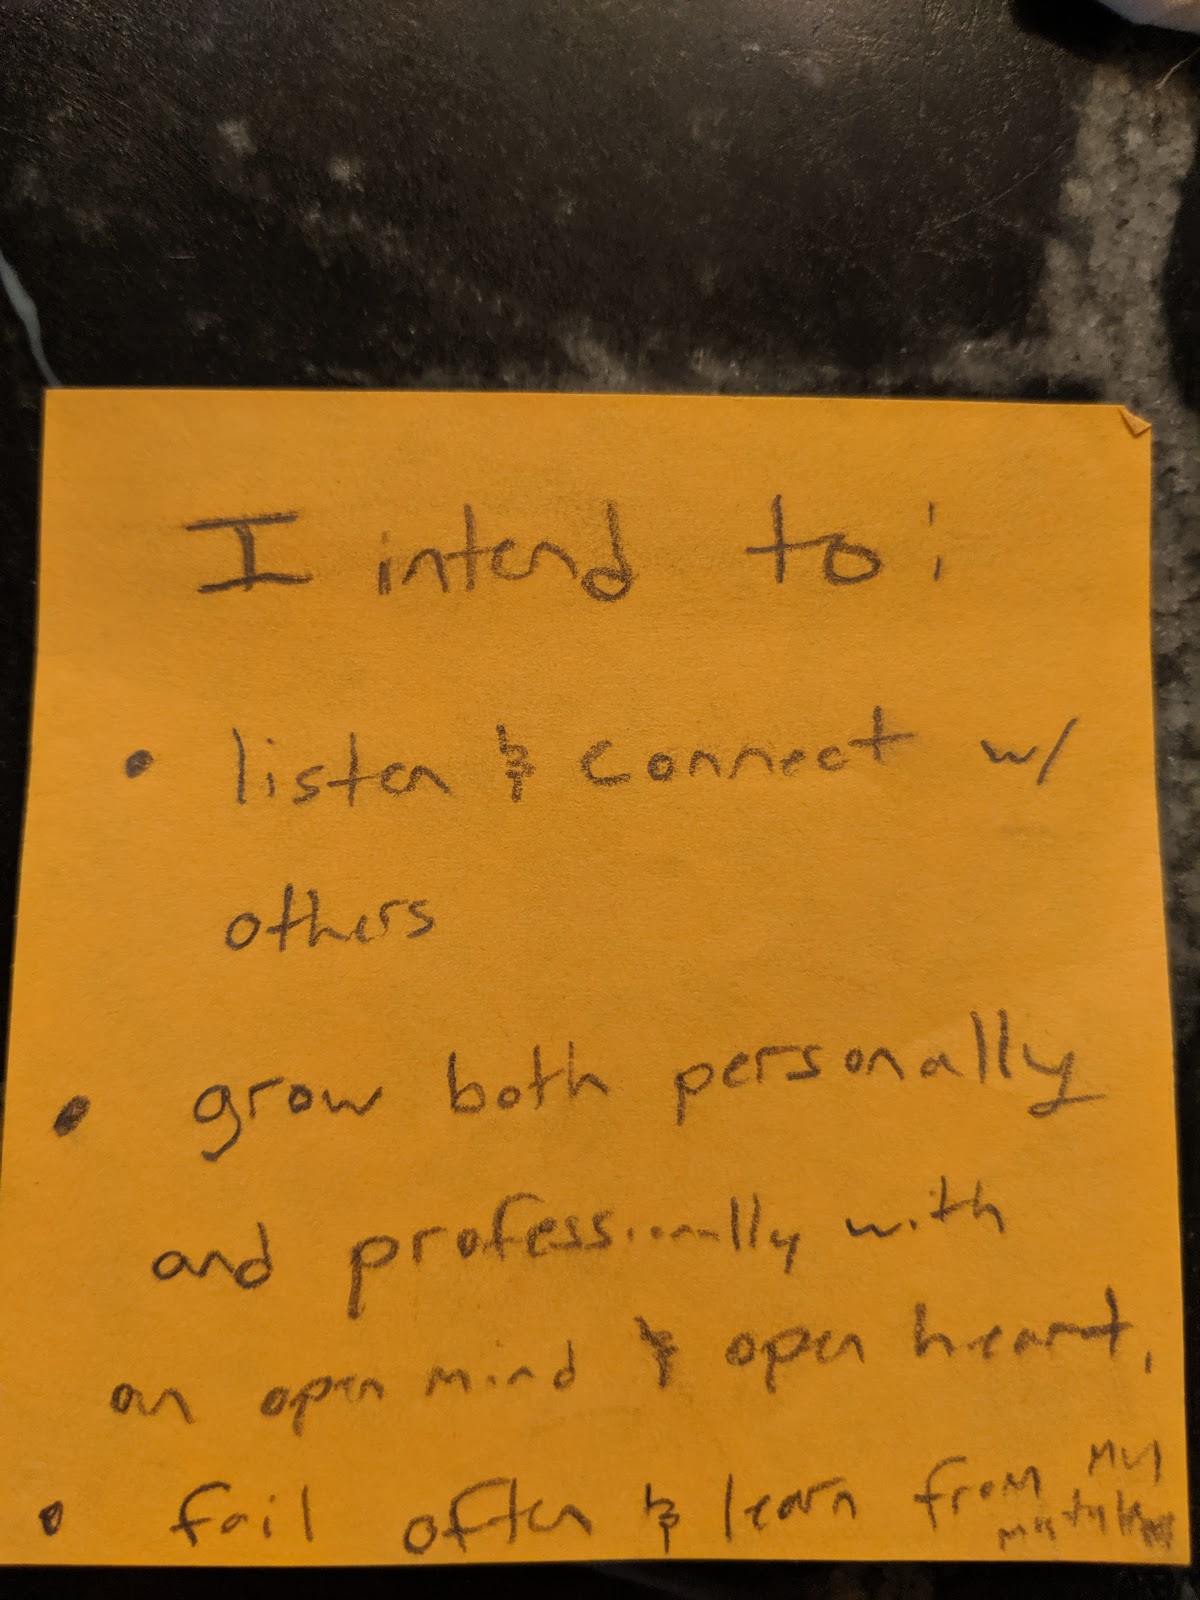 I intend to:
• listen & connect w/
others
• grow both personally
and professionally with
an open mind & open heart.
• fail often & learn from my
mistakes